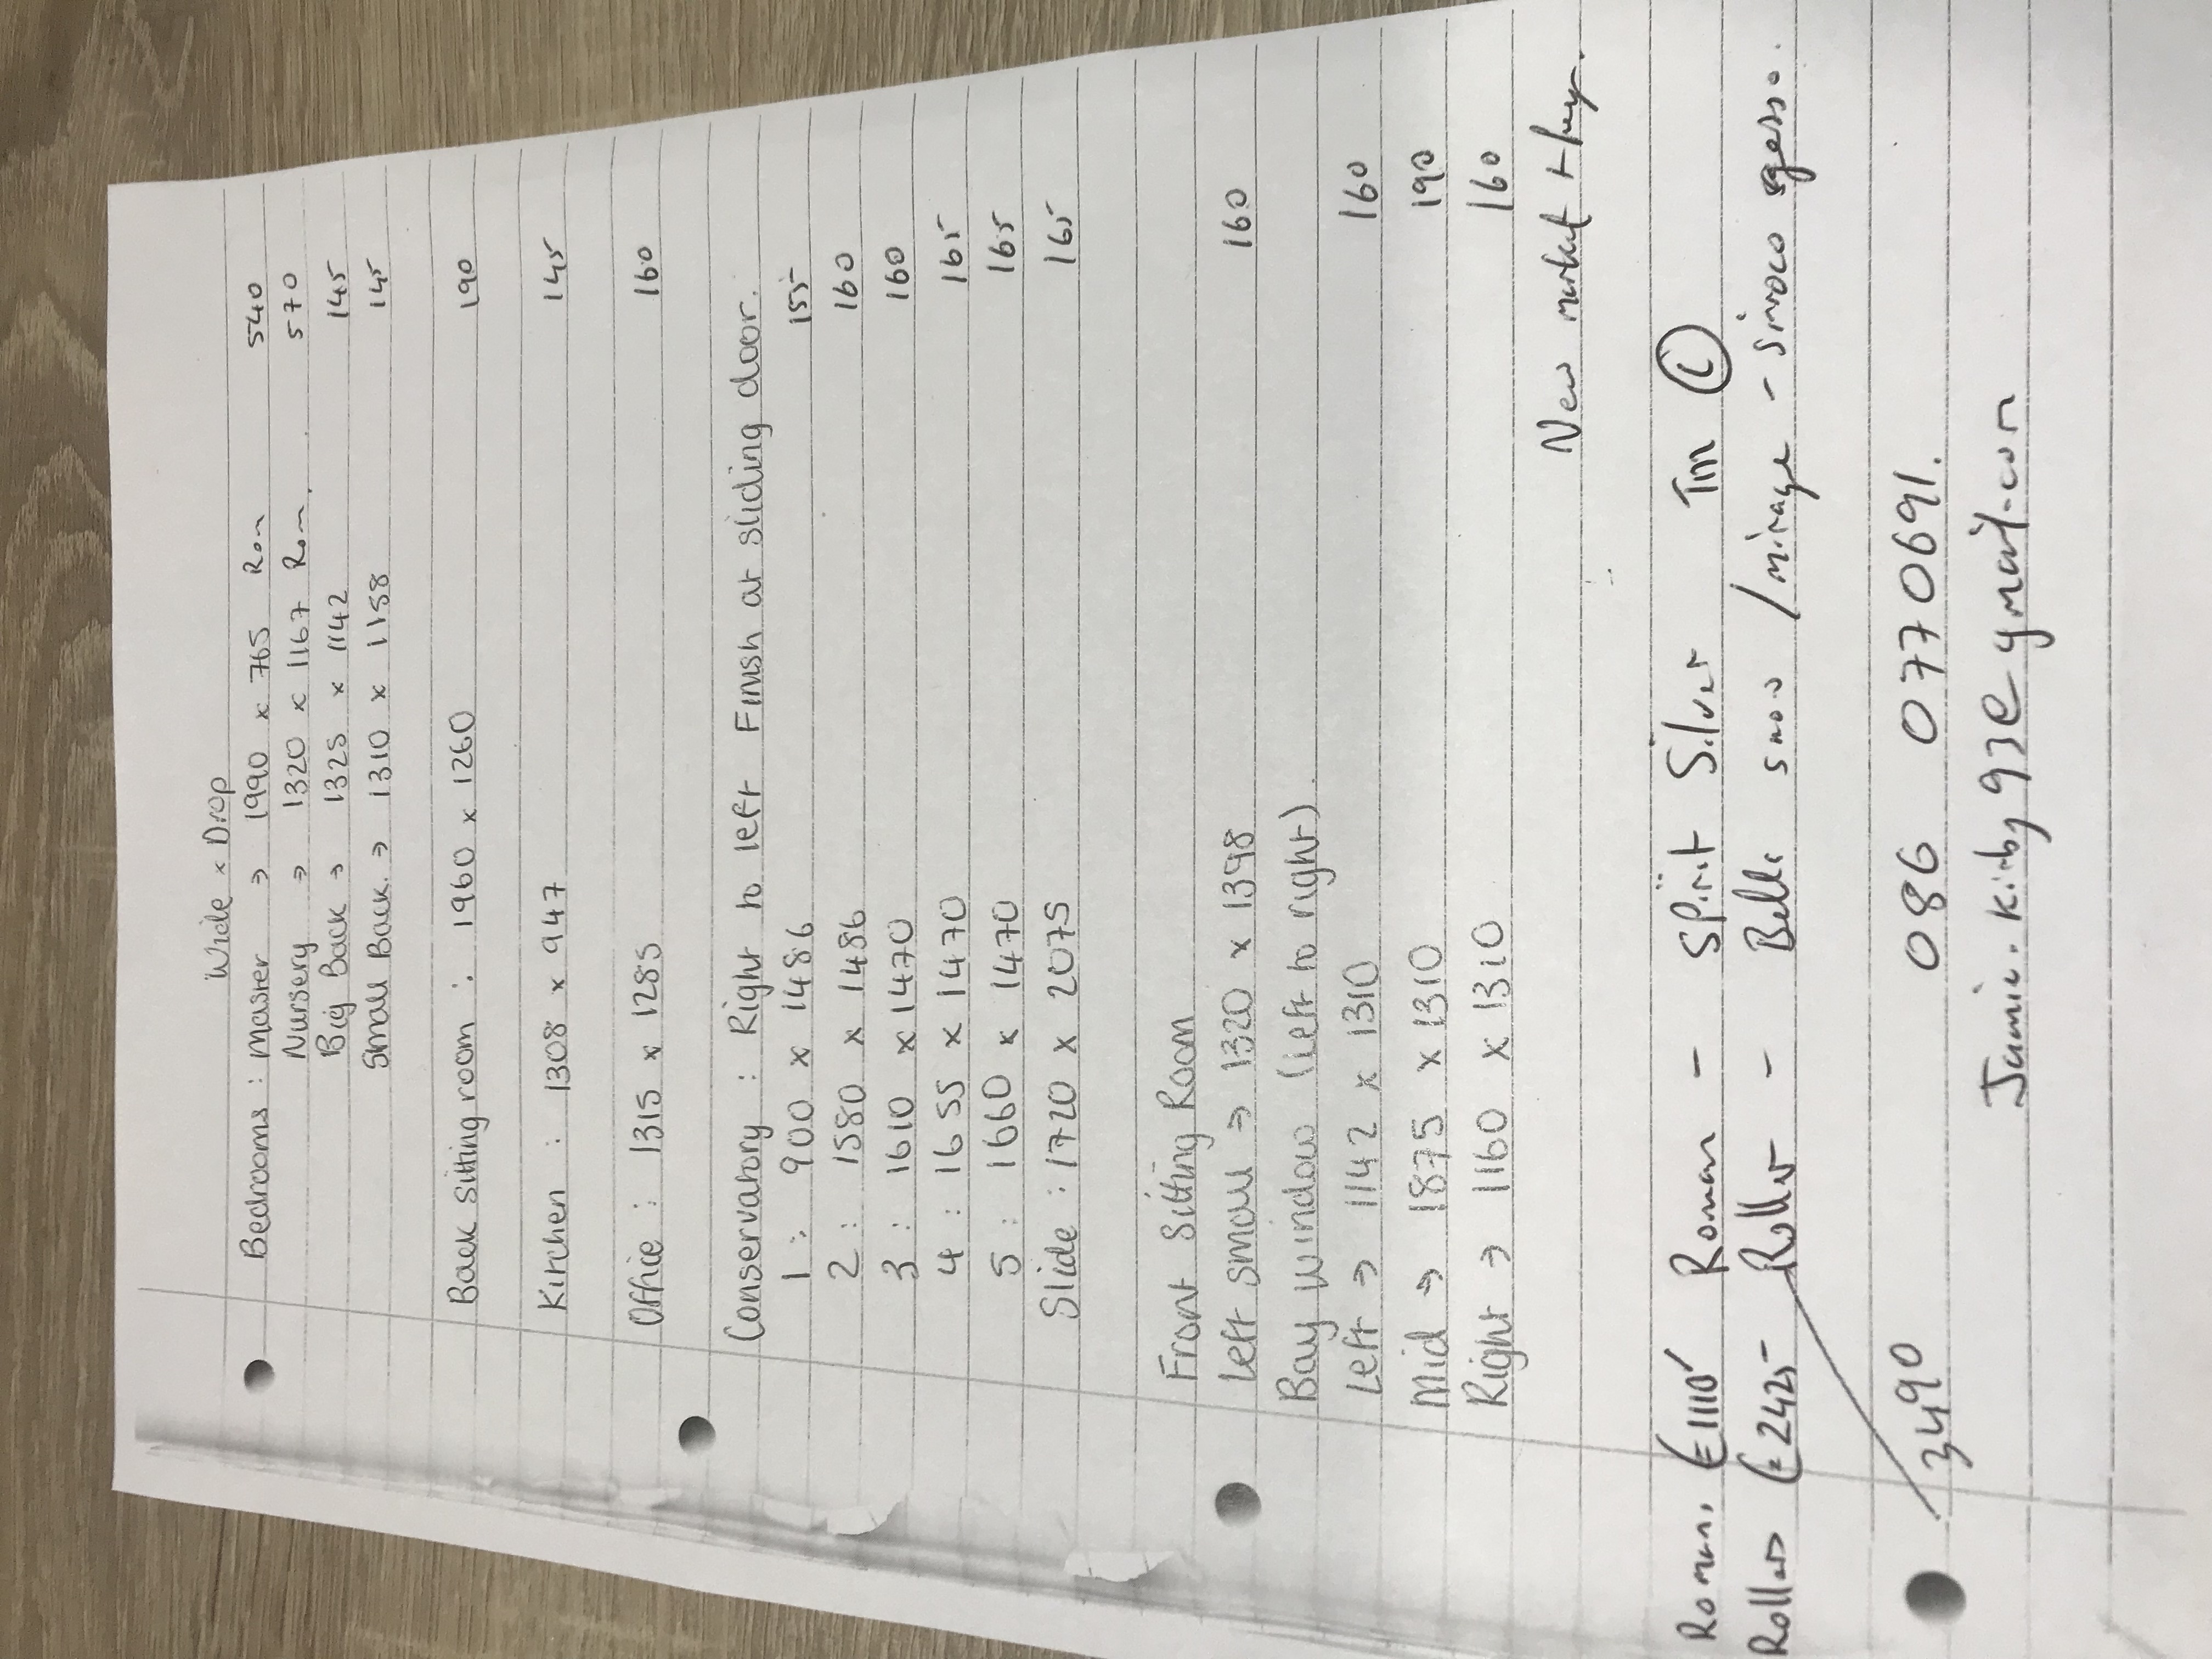 Wide x Drop
Bedrooms : Master → 1990 x 765 Rom 540
Nursery → 1320 x 1167 Rom. 570
Big Back → 1325 x 1142 145
Small Back. → 1310 x 1158 145
Back sitting room : 1960 x 1260 190
Kitchen : 1308 x 947 145
Office : 1315 x 1285 160
Conservatory : Right to left Finish at sliding door.
1 : 900 x 1486 155
2 : 1580 x 1486 160
3 : 1610 x 1470 160
4 : 1655 x 1470 165
5 : 1660 x 1470 165
Slide : 1720 x 2075 165
Front Sitting Room
Left small → 1320 x 1398 160
Bay Window (left to right).
Left → 1142 x 1310 160
Mid → 1875 x 1310 190
Right → 1160 x 1310 160
New market
Roman. €1110 Roman - Spirit Silver Tm L
Rollers €2425 Roller - Bella snow / mirage - Siroco gesso.
3490 086 0770691.